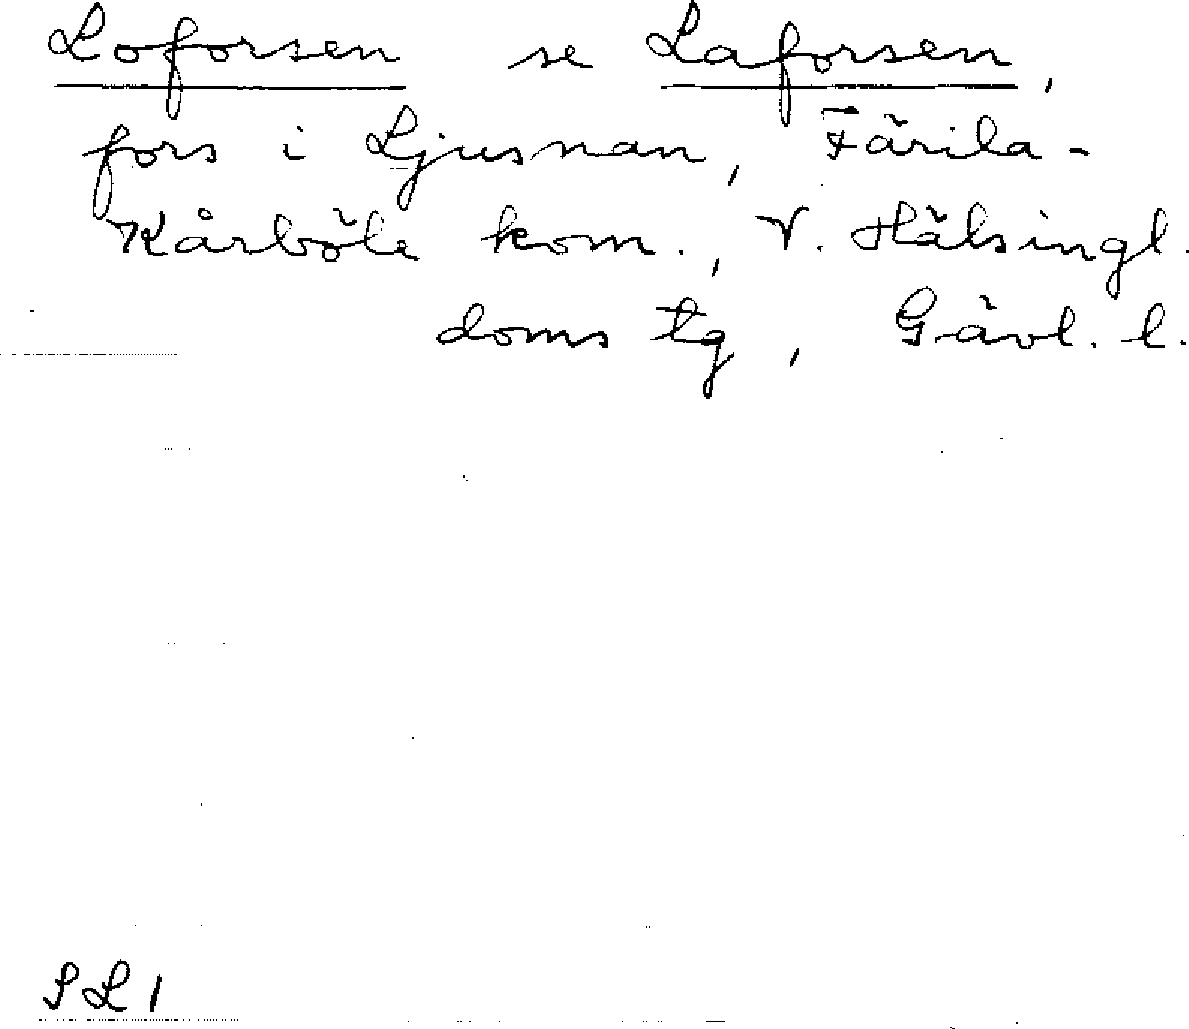 Loforsen se Laforsen,
fors i Ljusnan, Färila-
Kårböle kom., V. Hälsingl.
doms tg, Gävl. l.
SL 1